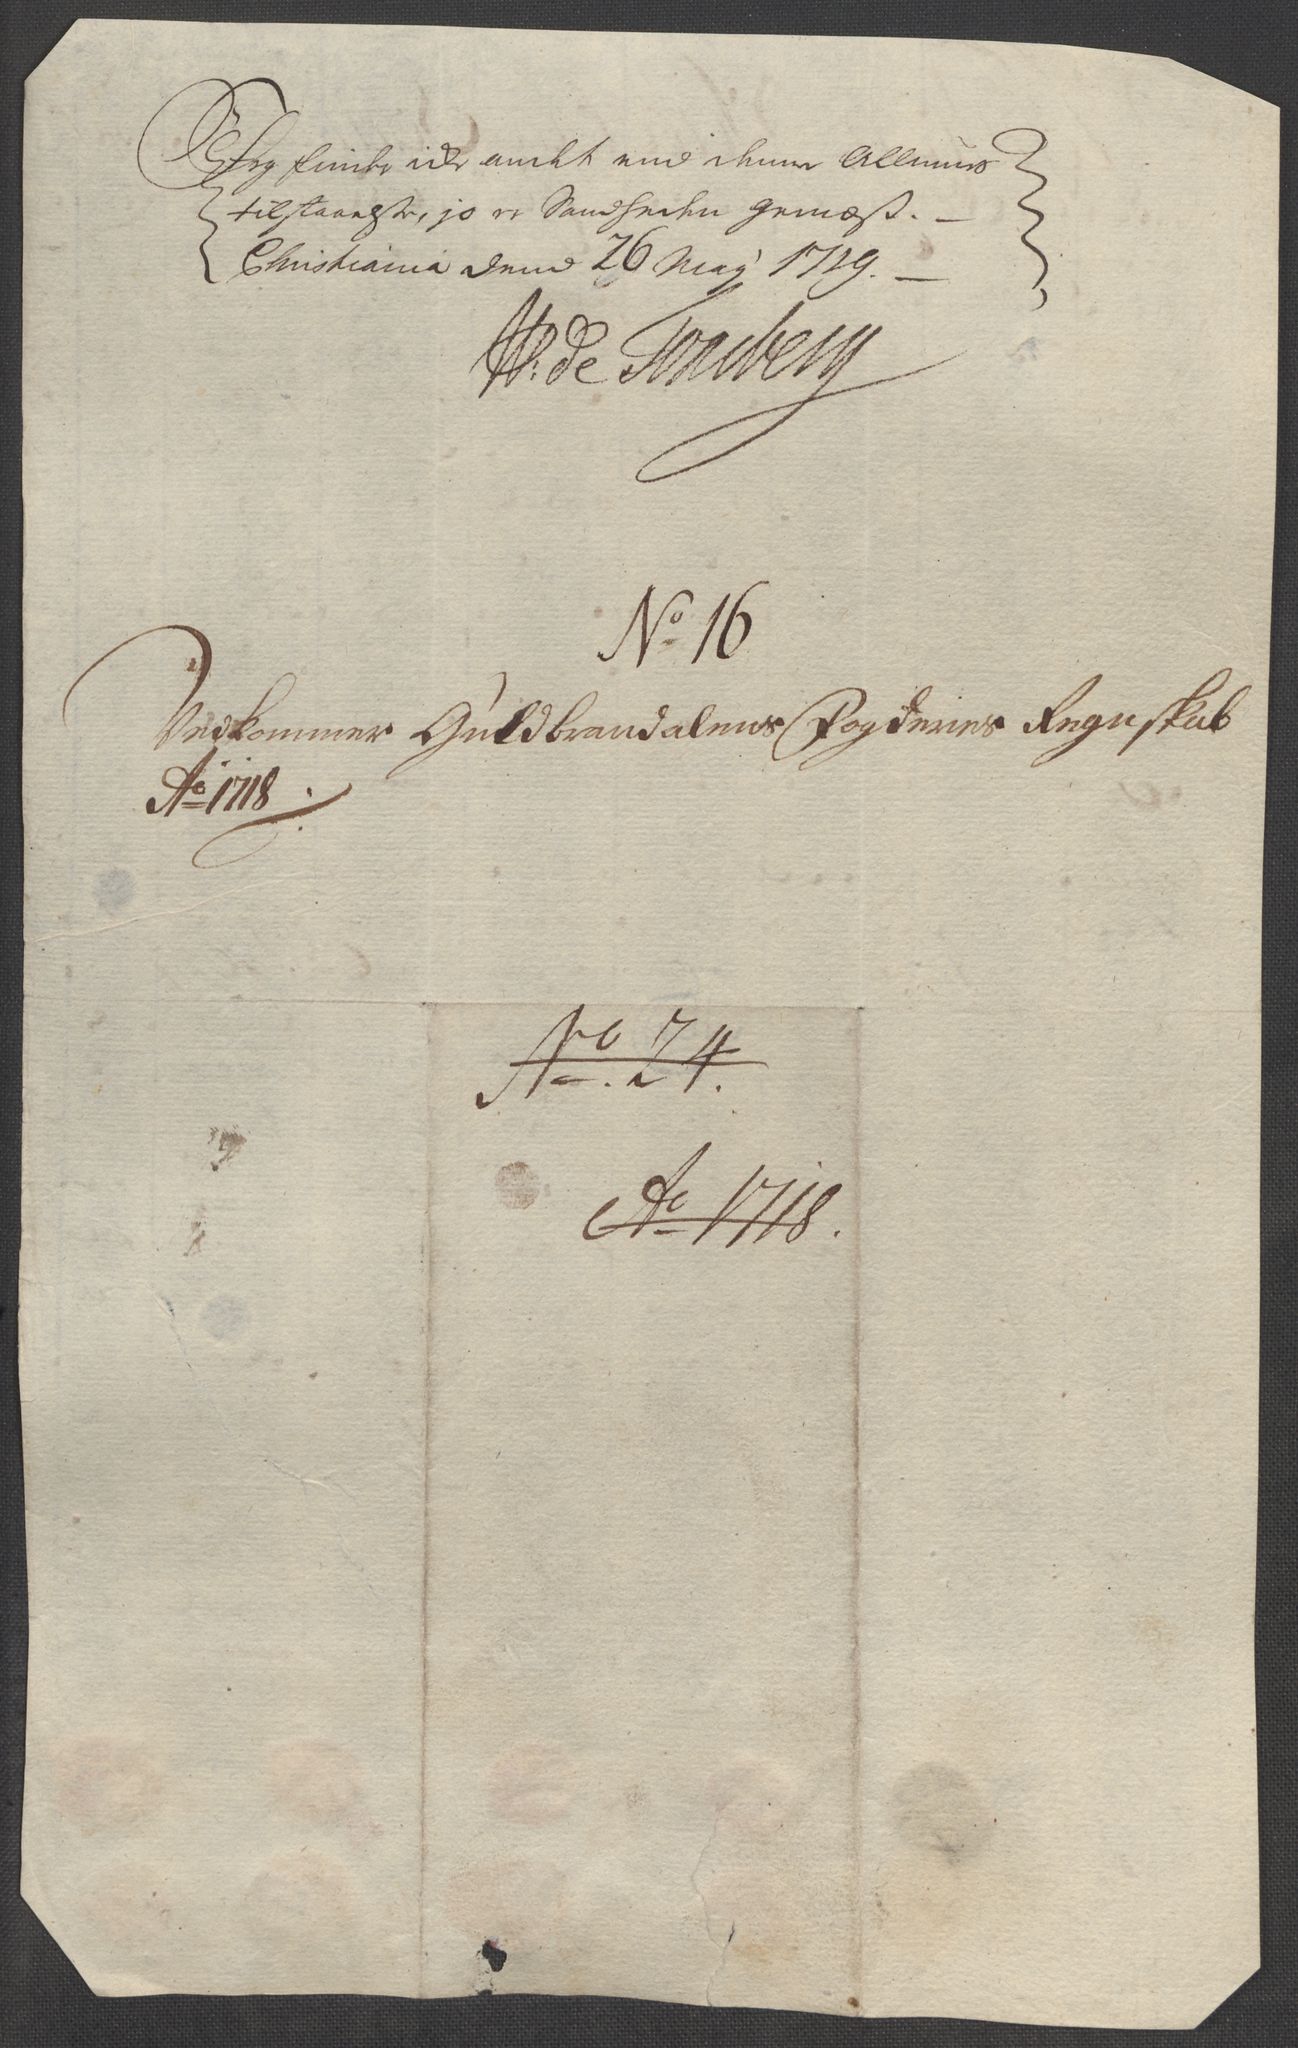 Jeg finder icke andet end denne Allmues
tilstaaelse, jo er Sandheden gemæss. —
Christiania dend 26 Maÿ 1719. —
W: de Tonsberg
No 16
Vedkommer Guldbrandalens Fogderies Regnskab
Ao 1718.
No. 24.
Ao 1718.